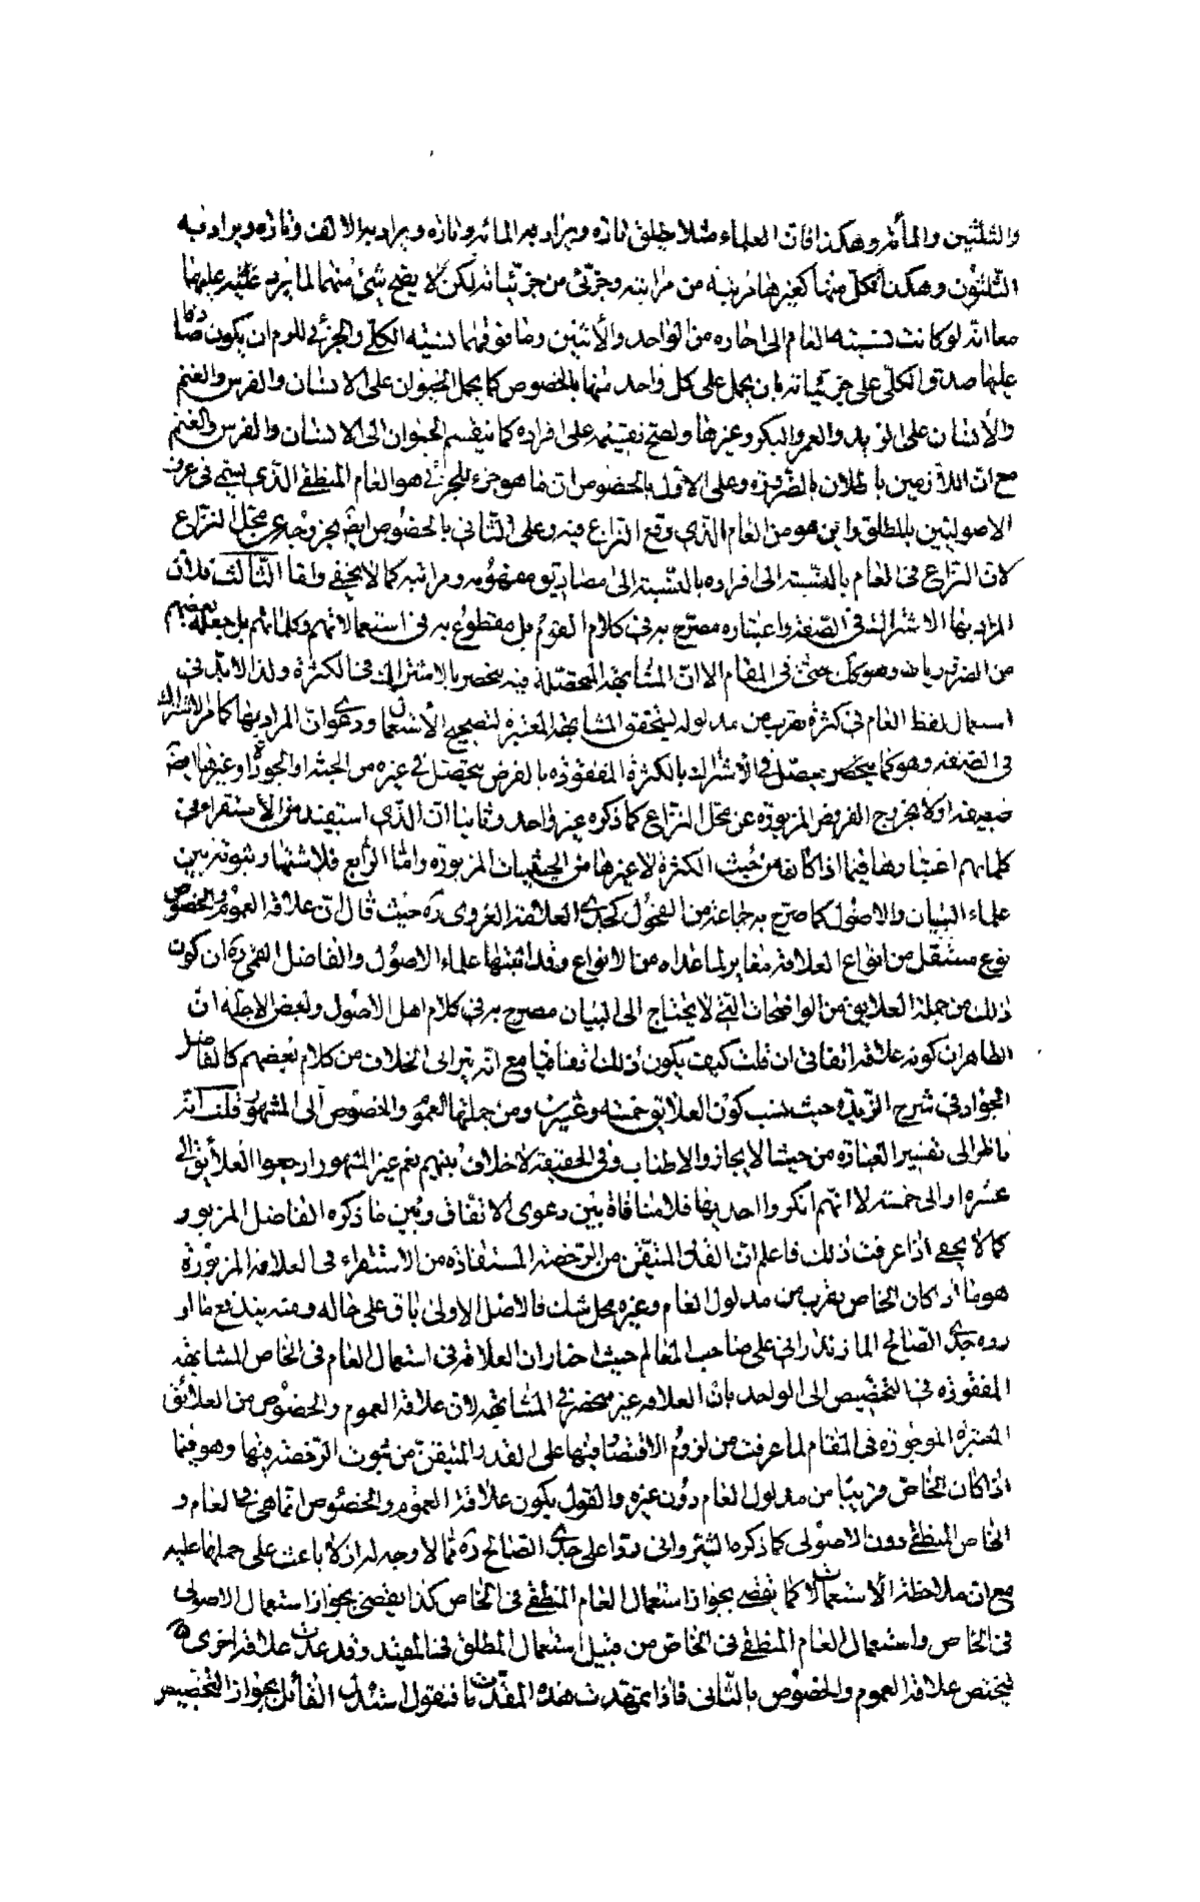 والثلثين والمأة وهكذا فان العلماء مثلا يطلق تارة ويراد به المائة وتارة ويراد به الالف وتارة ويراد به
الثلثون وهكذا فكل منها كغيرها مرتبة من مراتبه وجزئى من جزئياته لكن لا يصح شئ منهما لما يرد عليه عليهما
معا انه لو كانت نسبة العام الى احاده من الواحد والأثنين وما فوقهما نسبة الكلى والجزئى للزم ان يكون صدقه
عليها صدق الكلى على جزئياته بان يحمل على كل واحد منها بالخصوص كما يحمل الحيوان على الانسان والفرس والغنم
والأنسان على الزيد والعمر والبكر وغيرها ولصح تقسيمه على افراده كما ينقسم الحيوان الى الانسان والفرس والغنم
مع ان اللازمين باطلان بالضرورة وعلى الاول بالخصوص ان ما هو جزء للجزئى هو العام المنطقى الذى يسمى فى عرف
الاصوليين بالمطلق واين هو من العام الذى وقع النزاع فيه وعلى الثانى بالخصوص ايضا بخروجه عن محل النزاع
لان النزاع فى العام بالنسبة الى افراده بالنسبة الى مصاديق مفهومه ومراتبه كما لا يخفى واما الثالث فلان
المراد بها الاشتراك فى الصفة واعتباره مصرح به فى كلام القوم بل مقطوع به فى استعمالاتهم وكلماتهم بل جعله بعضهم
من الضروريات وهو كك حتى فى المقام الا ان المشابهة المحصلة فيه ينحصر بالاشتراك فى الكثرة ولذا لابد فى
استعمال لفظ العام فى كثرة تقرب من مدلوله ليتحقق المشابهة المعتبرة لتصحيح الأستعمال ودعوى ان المراد بها كما مر الاشتراك
فى الصفة وهو كما يحصل فى الأشتراك بالكثرة المفقودة بالفرض يحصل فى غيره من الجثة او الجودة او غيرها ايضا
ضعيفة اولا بخروج الفروض المزبورة عن محل النزاع كما ذكره غير واحد وثانيا ان الذى استفيد من الأستقراء فى
كلماتهم اعتبارها فيما اذا كان من حيث الكثرة لا غيرها من الحيثيات المزبورة واما الرابع فلاشتهاره وثبوته بين
علماء البيان والاصول كما صرح به جماعة من الفحول كجدى العلامة الغروى ره حيث قال ان علاقة العموم والخصوص
نوع مستقل من انواع العلاقة مغاير لما عداه من الانواع وقد اثبتها علماء الاصول والفاضل القمى ره ان كون
ذلك من جملة العلايق من الواضحات التى لا يحتاج الى البيان مصرح به فى كلام اهل الاصول وبعض الاجلة ان
الظاهر ان كونه علاقة اتفاقى ان قلت كيف يكون ذلك اتفاقيا مع انه يترائى الخلاف من كلام بعضهم كالفاضل
الجواد فى شرح الزبدة حيث نسب كون العلايق خمسة وعشرين ومن جملتها العموم والخصوص الى المشهور قلت انه
ناظر الى تفسير العبارة من حيث الايجاز والاطناب وفى الحقيقة لا خلاف بينهم نعم غير المشهور ارجعوا العلأيق الى
عشرة او الى خمسة لا انهم انكروا احديها فلا منافاة بين دعوى الاتفاق وبين ما ذكره الفاضل المزبور
كما لا يخفى اذا عرفت ذلك فاعلم ان القدر المتيقن من الرخصة المستفادة من الاستقراء فى العلاقة المزبورة
هو ما اذ كان الخاص يقرب من مدلول العام وغيره محل شك فالاصل الاولى باق على حاله ومنه يندفع ما او
رده جدى الصالح المازندرانى على صاحب المعالم حيث اختار ان العلاقة فى استعمال العام فى الخاص المشابهة
المفقودة فى التخصيص الى الواحد بان العلاقة غير منحصر فى المشابهة لان علاقة العموم والخصوص من العلائق
المعتبرة الموجودة فى المقام لما عرفت من لزوم الاقتصار فيها على القدر المتيقن من ثبوت الرخصة فيها وهو فيما
اذا كان الخاص قريبا من مدلول العام دون غيره والقول بكون علاقة العموم والخصوص انما هى فى العام و
الخاص المنطقى دون الاصولى كما ذكره الشيروانى ردا على جدى الصالح ره مما لا وجه له اذ لا باعث على حملها عليه
مع ان ملاحظة الأستعمالات كما يقضى بجواز استعمال العام المنطقى فى الخاص كذا يقضى بجواز استعمال الاصولى
فى الخاص واستعمال العام المنطقى فى الخاص من قبيل استعمال المطلق فى المقيد وقد عدت علاقة اخرى
فيختص علاقة العموم والخصوص بالثانى فاذا تمهدت هذه المقدمات فنقول استدل القائل بجواز التخصيص